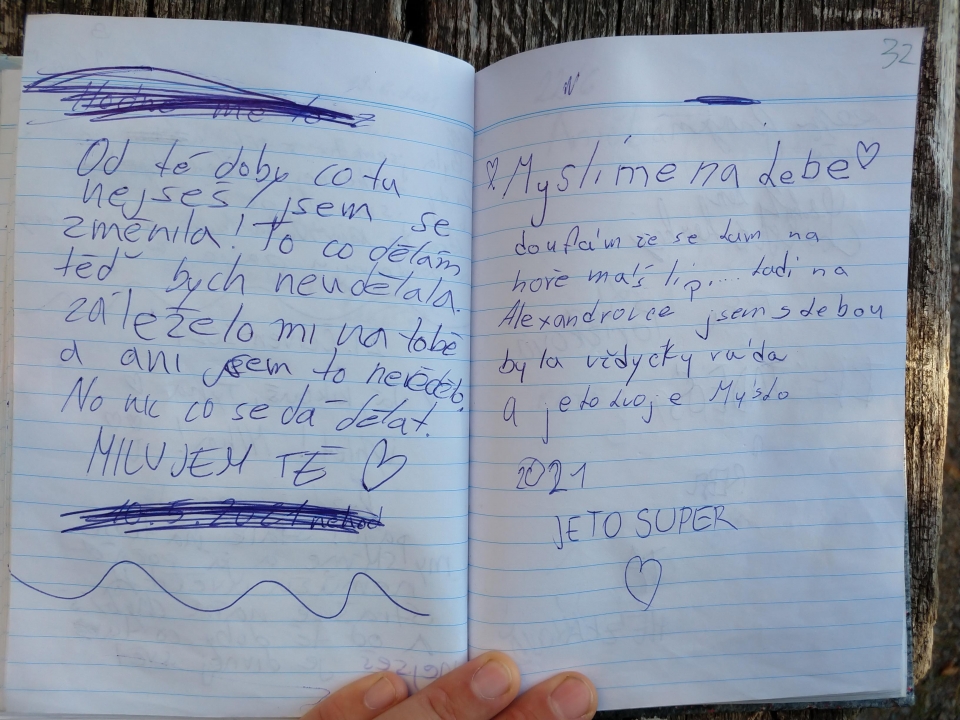 Od té doby co tu
nejseš, jsem se
změnila! To co dělám
těď bych neudělala.
záleželo mi na tobě
a ani jsem to nevěděla.
No nic co se dá dělat!
MILUJEM TĚ
10.5.2021
32
Myslíme na debe
doufám že se tam na
hoře maš líp.... tadi na
Alexandrovce jsem s debou
byla vždycky ráda
A jeto tvoje Mýsto
2021
JETO SUPER